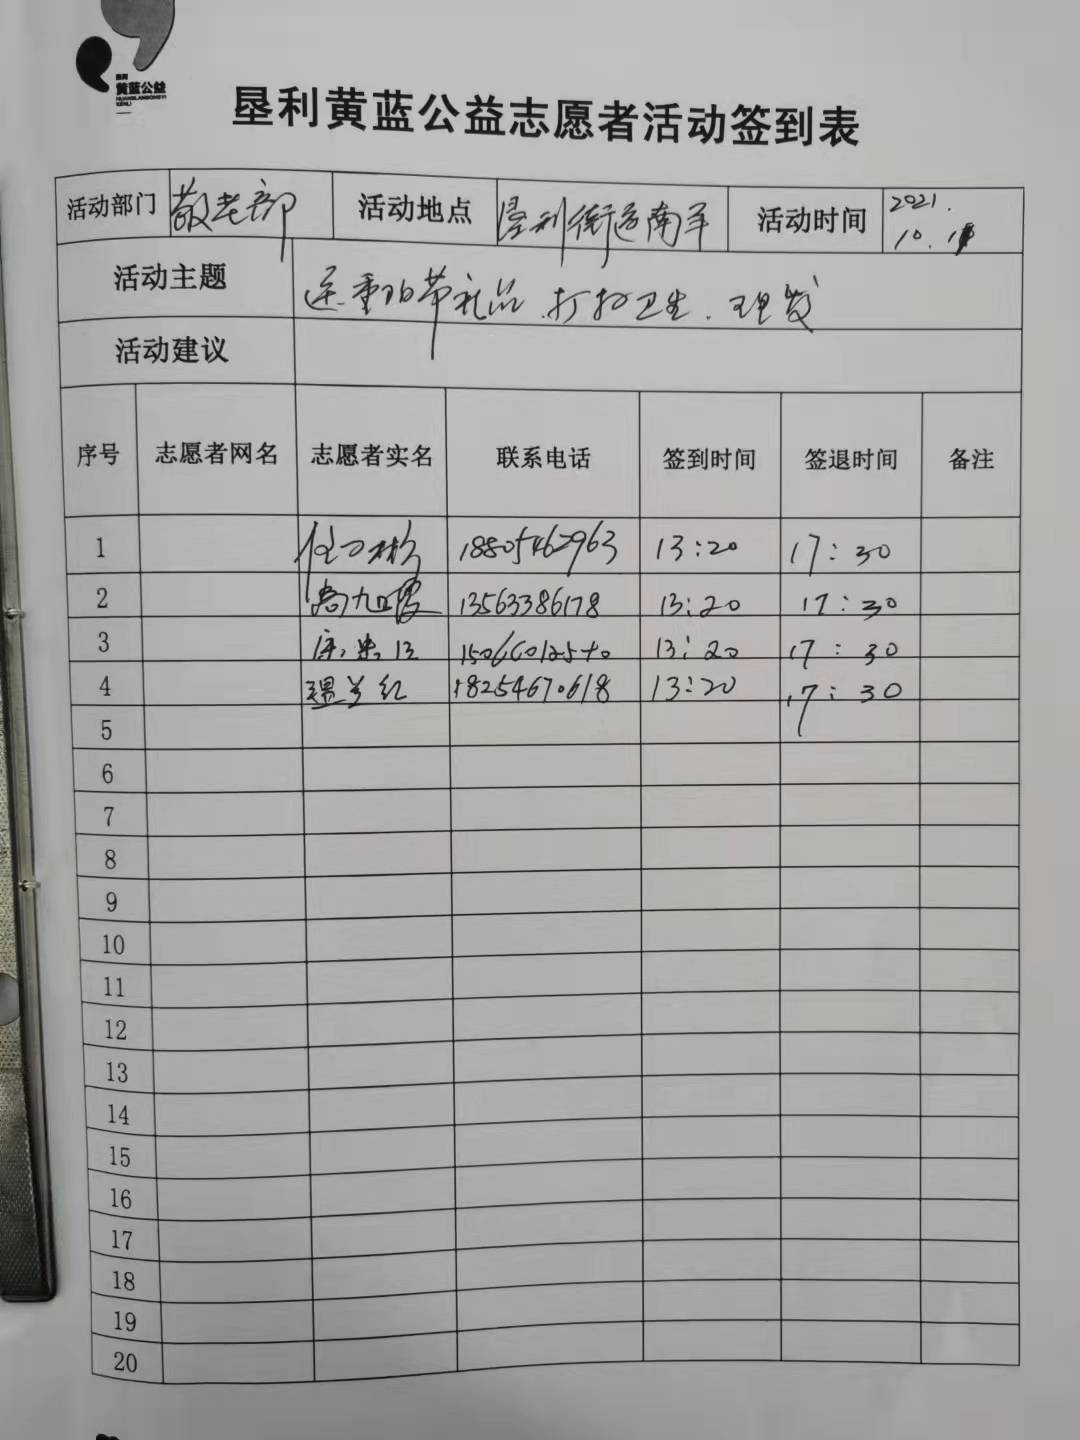 垦利
黄蓝公益
HUANGLANGONGYI
KENLI
垦利黄蓝公益志愿者活动签到表
活动部门 敬老部 活动地点 垦利街道南 活动时间 2021. 10.
活动主题 重阳节礼品、打扫卫生、理发
活动建议
序号 志愿者网名 志愿者实名 联系电话 签到时间 签退时间 备注
1 18805462963 13:20 17:30
2 13563386178 13:20 17:30
3 13:20 17:30
4 18254670618 13:20 17:30
5
6
7
8
9
10
11
12
13
14
15
16
17
18
19
20